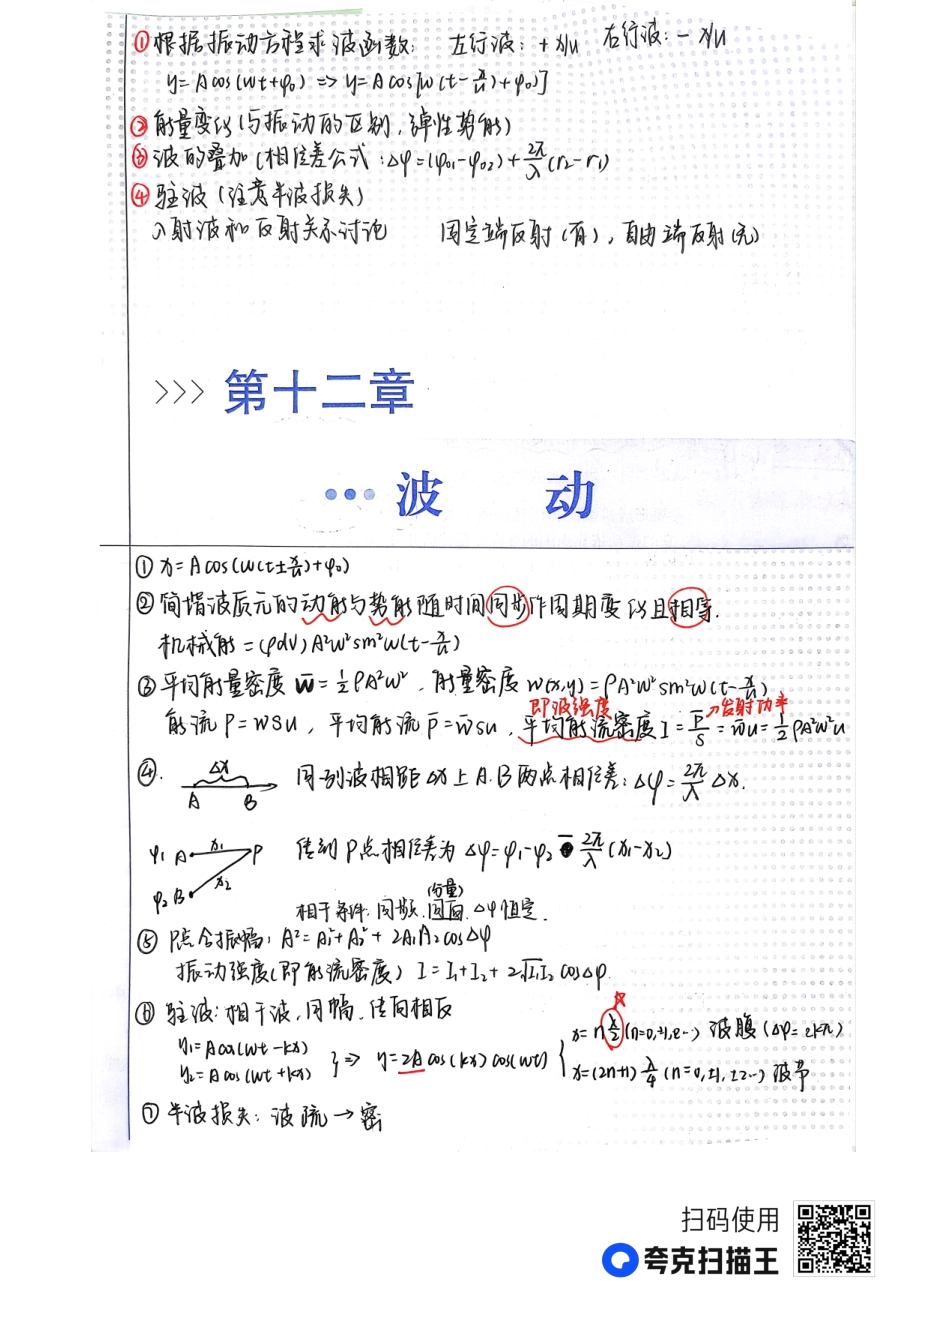 ①根据振动方程求波函数: 左行波: + x/u 右行波: - x/u
y=Acos(wt+φ₀) => y=Acos[w(t-x/u)+φ₀)]
②能量变化(与振动的区别, 弹性势能)
③波的叠加(相位差公式: Δφ=(φ₀₁-φ₀₂)+2π/λ(r₂-r₁)
④驻波(注意半波损失)
入射波和反射关系讨论 固定端反射(有), 自由端反射(无)
>>> 第十二章
••• 波 动
① x=Acos(w(t±x/u)+φ₀)
② 简谐波质元的动能与势能随时间同步作周期变化且相等.
机械能=(ρdV)A²w²sin²w(t-x/u)
③ 平均能量密度 w̄=½ρA²w², 能量密度 w(x,y)=ρA²w²sin²w(t-x/u)
即波强度 发射功率
能流 P=wsu, 平均能流 P̄=w̄su, 平均能流密度 I=P̄/S=w̄u=½ρA²w²u
④. Δx 同一列波相距Δx上A.B两点相位差: Δφ=2π/λ Δx.
A B
φ₁ A x₁ P 传到P点相位差为 Δφ=φ₁-φ₂-2π/λ(x₁-x₂)
φ₂ B x₂
(分量)
相干条件: 同频. 同向. Δφ恒定.
⑤ P点合振幅: A²=A₁²+A₂²+2A₁A₂cosΔφ
振动强度(即能流密度) I=I₁+I₂+2√I₁I₂ cosΔφ.
⑥ 驻波: 相干波, 同幅, 传向相反
y₁=Acos(wt-kx)
y₂=Acos(wt+kx) } => y=2Acos(kx)cos(wt) { x=nλ/2(n=0,±1,±2…) 波腹(Δφ=2kπ)
x=(2n+1)λ/4(n=0,±1,±2…) 波节
⑦ 半波损失: 波疏→密
扫码使用
夸克扫描王